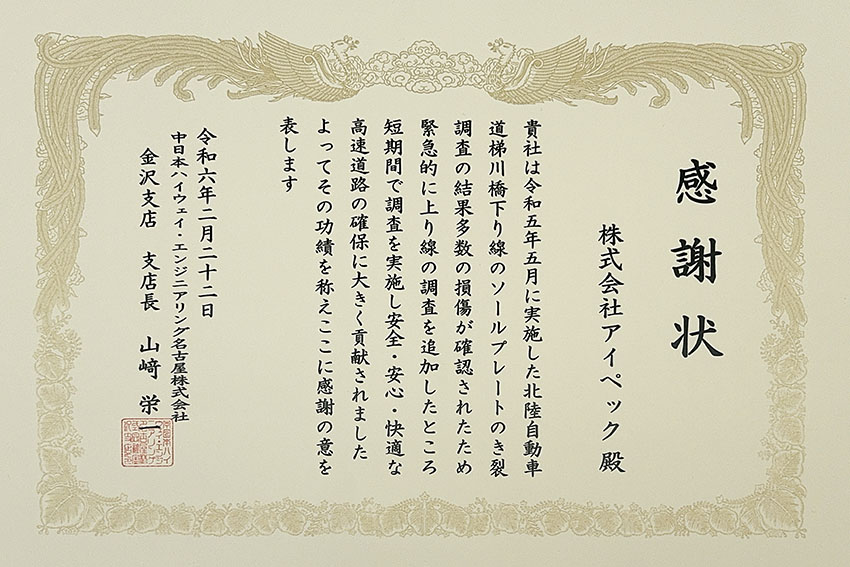 感謝状
株式会社アイペック 殿
貴社は令和五年五月に実施した北陸自動車
道梯川橋下り線のソールプレートのき裂
調査の結果多数の損傷が確認されたため
緊急的に上り線の調査を追加したところ
短期間で調査を実施し安全・安心・快適な
高速道路の確保に大きく貢献されました
よってその功績を称えここに感謝の意を
表します
令和六年二月二十二日
中日本ハイウェイ・エンジニアリング名古屋株式会社
金沢支店 支店長 山﨑 栄一